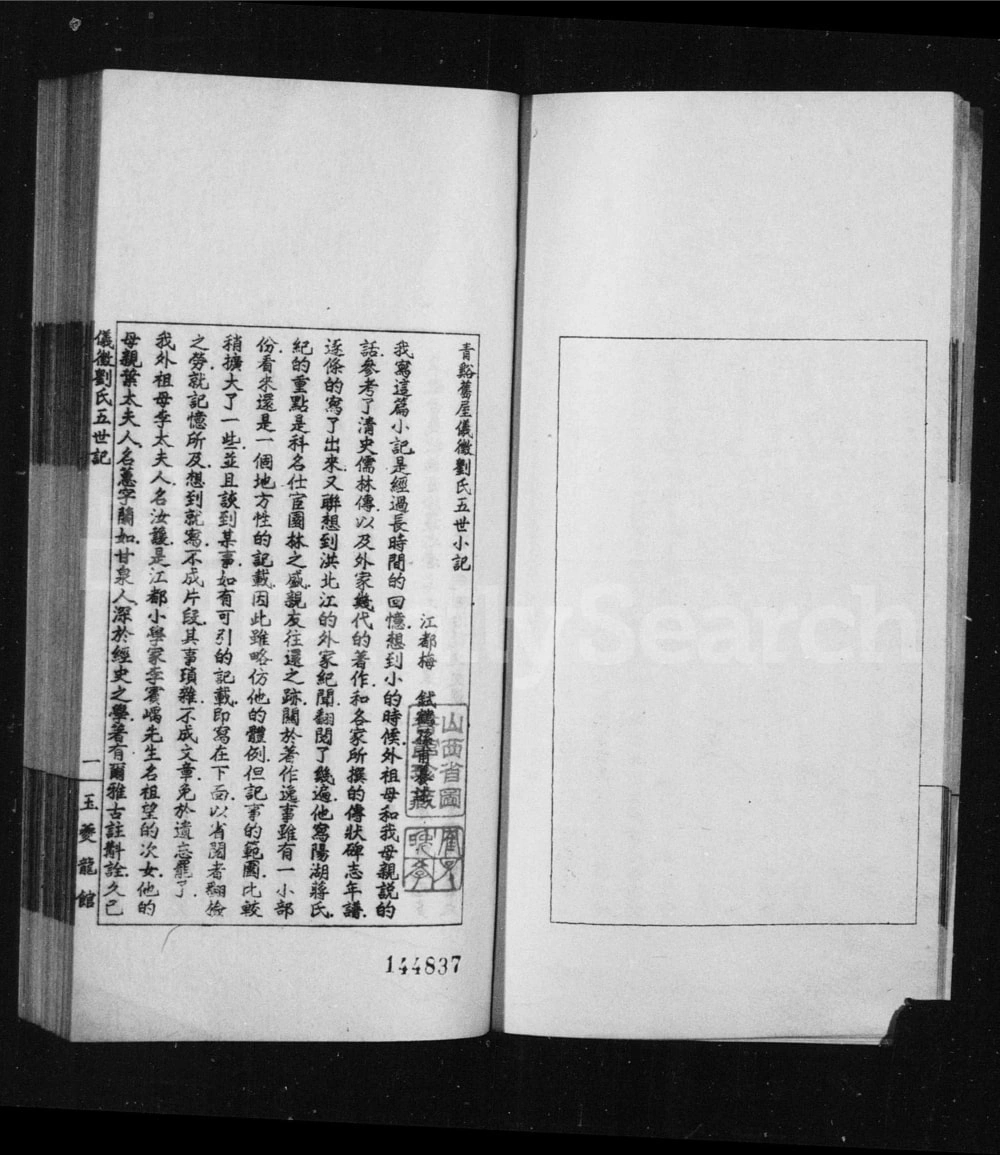 青谿舊屋儀徵劉氏五世小記
江都梅 鉽鶴孫甫
我寫這篇小記是經過長時間的回憶.想到小的時候.外祖母和我母親説的
話.參考了清史儒林傳.以及外家幾代的著作.和各家所撰的傳狀碑志年譜.
逐條的寫了出來.又聯想到洪北江的外家紀聞.翻閱了幾遍.他寫陽湖蔣氏.
紀的重點是科名仕宦園林之盛.親友往還之跡.關於著作逸事.雖有一小部
份.看來還是一個地方性的記載.因此雖略仿他的體例.但記事的範圍.比較
稍擴大了一些.並且談到某事.如有可引的記載.即寫在下面.以省閱者翻檢
之勞.就記憶所及.想到就寫.不成片段.其事瑣雜.不成文章.免於遺忘罷了.
我外祖母李太夫人.名汝諼.是江都小學家李賓嵎先生名祖望的次女.他的
母親葉太夫人.名蕙.字蘭如.甘泉人.深於經史之學.著有爾雅古註斠詮.久已
儀徵劉氏五世記
一
玉夔龍館
山西省圖
藏
144837
FamilySearch